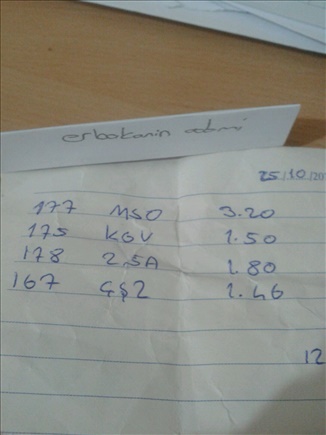 erbakanin adami
25/10/20
177 MSO 3.20
175 KGV 1.50
178 2,5A 1.80
167 ÇŞ2 1.46
12